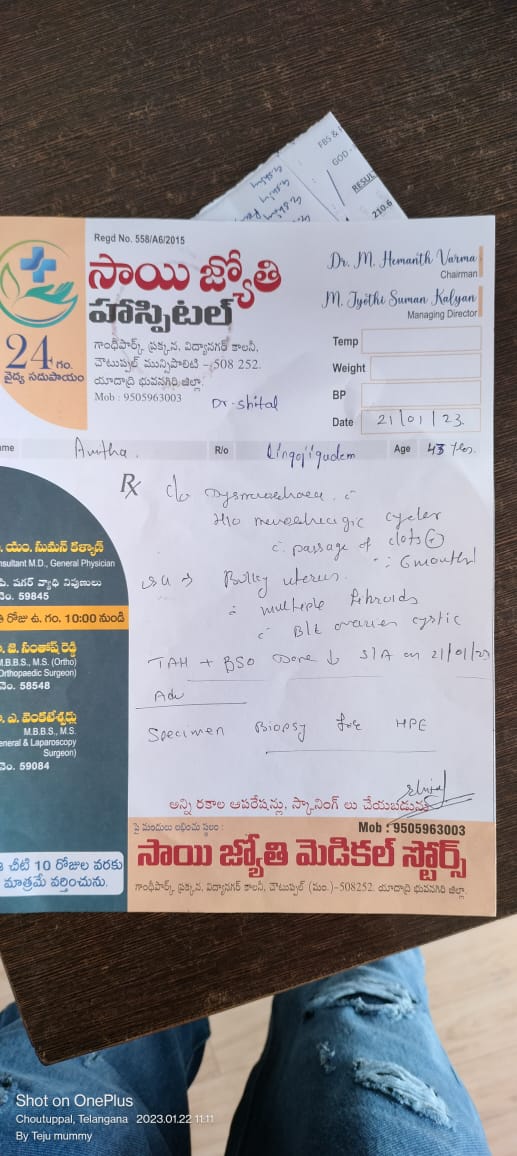 FBS &
GOD -
RESUL
210.6
Regd No. 558/A6/2015
సాయి జ్యోతి
హాస్పిటల్
24 గం.
వైద్య సదుపాయం
గాంధీపార్క్ ప్రక్కన, విద్యానగర్ కాలనీ,
చౌటుప్పల్ మున్సిపాలిటి - 508 252.
యాదాద్రి భువనగిరి జిల్లా.
Mob : 9505963003
Dr. M. Hemanth Varma
Chairman
M. Jyothi Suman Kalyan
Managing Director
Temp
Weight
BP
Date 21/01/23
Dr-shital
ame Anitha. R/o Lingojigudem Age 43 yrs.
Rx c/o Dysmenorrhoea c
H/o menorrhagic cycles
c passage of clots +
: 6 months
USG → Bulky uterus
c multiple fibroids
c B/L ovaries cystic
TAH + BSO Done ↓ S/A on 21/01/23
Adv
Specimen Biopsy for HPE
. యం. సుమన్ కళ్యాణ్
nsultant M.D., General Physician
పి. షుగర్ వ్యాధి నిపుణులు
నెం. 59845
తి రోజు ఉ. గం. 10:00 నుండి
. జి. సంతోష్ రెడ్డి
M.B.B.S., M.S. (Ortho)
Orthopaedic Surgeon)
నెం. 58548
. ఎ. వెంకటేశ్వర్లు
M.B.B.S., M.S.
eneral & Laparoscopy
Surgeon)
నెం. 59084
ఈ చీటి 10 రోజుల వరకు
మాత్రమే వర్తించును.
shital
అన్ని రకాల ఆపరేషన్లు, స్కానింగ్ లు చేయబడును
పై మందులు లభించు స్థలం :
Mob : 9505963003
సాయి జ్యోతి మెడికల్ స్టోర్స్
గాంధీపార్క్ ప్రక్కన, విద్యానగర్ కాలనీ, చౌటుప్పల్ (మం.)-508252. యాదాద్రి భువనగిరి జిల్లా.
Shot on OnePlus
Choutuppal, Telangana 2023.01.22 11:11
By Teju mummy